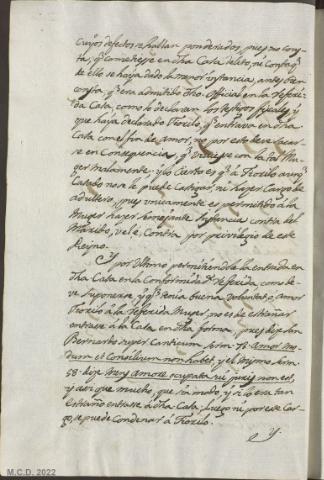 cuyos defectos se hallan ponderados, pues no cons-
ta, q.e cometiesse en dha Casa delito, ni consta q.e
de ello se haya dado la menor instancia, antes bien
consta, q.e era admitido dho Official en la referi-
da Casa, como lo declaran los testigos fiscales, y
que haya declarado Fiorilo, q.e entrava en dha
Casa con el fin de amor, no por esto deve sacar-
se en consequencia, q.e viviesse con la tal Mu-
ger malamente, y lo cierto es q.e á Fiorilo aunq.e
Casado no se le puede castigar, ni hazer Cargo de
adultero, pues unicamente es permitido á la
Muger hazer semejante instancia contra del
Marido, vel é Contra por privilegio de este
Reyno.
Y por ultimo permitiendole la entrada en
dha Casa en la conformidad referida, como de-
ve suponerse, y q.e tenia buena voluntad, o amor
Fiorilo á la referida Muger no es de estrañar
entrasse á la Casa en dha forma, pues dize San
Bernardo super Canticum serm. 73 Amor mo-
dum et Consilium non habet, y el mismo serm.
58. dize Mens amore occupata sui juris non est,
y assi que mucho, que sea modo, y si lo era tan
estraño entrasse á dha Casa; luego ni por este Car-
go se puede Condenar á Fiorilo.
Y
M.C.D. 2022